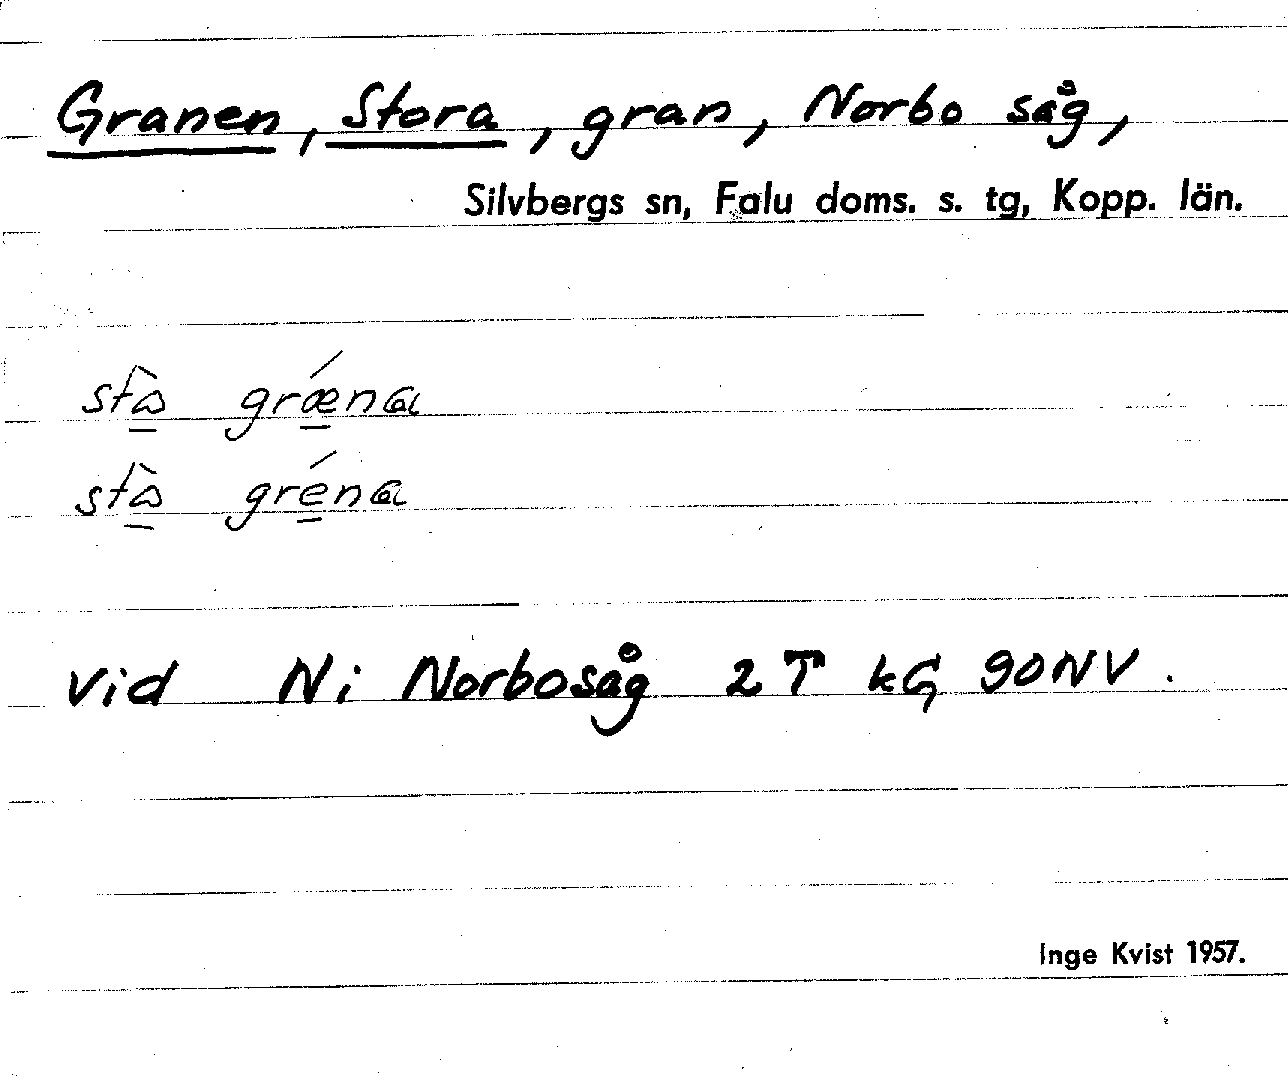 Granen, Stora, gran, Norbo såg,
Silvbergs sn, Falu doms. s. tg, Kopp. län.
vid N i Norbosåg 2 T kG 90NV.
Inge Kvist 1957.